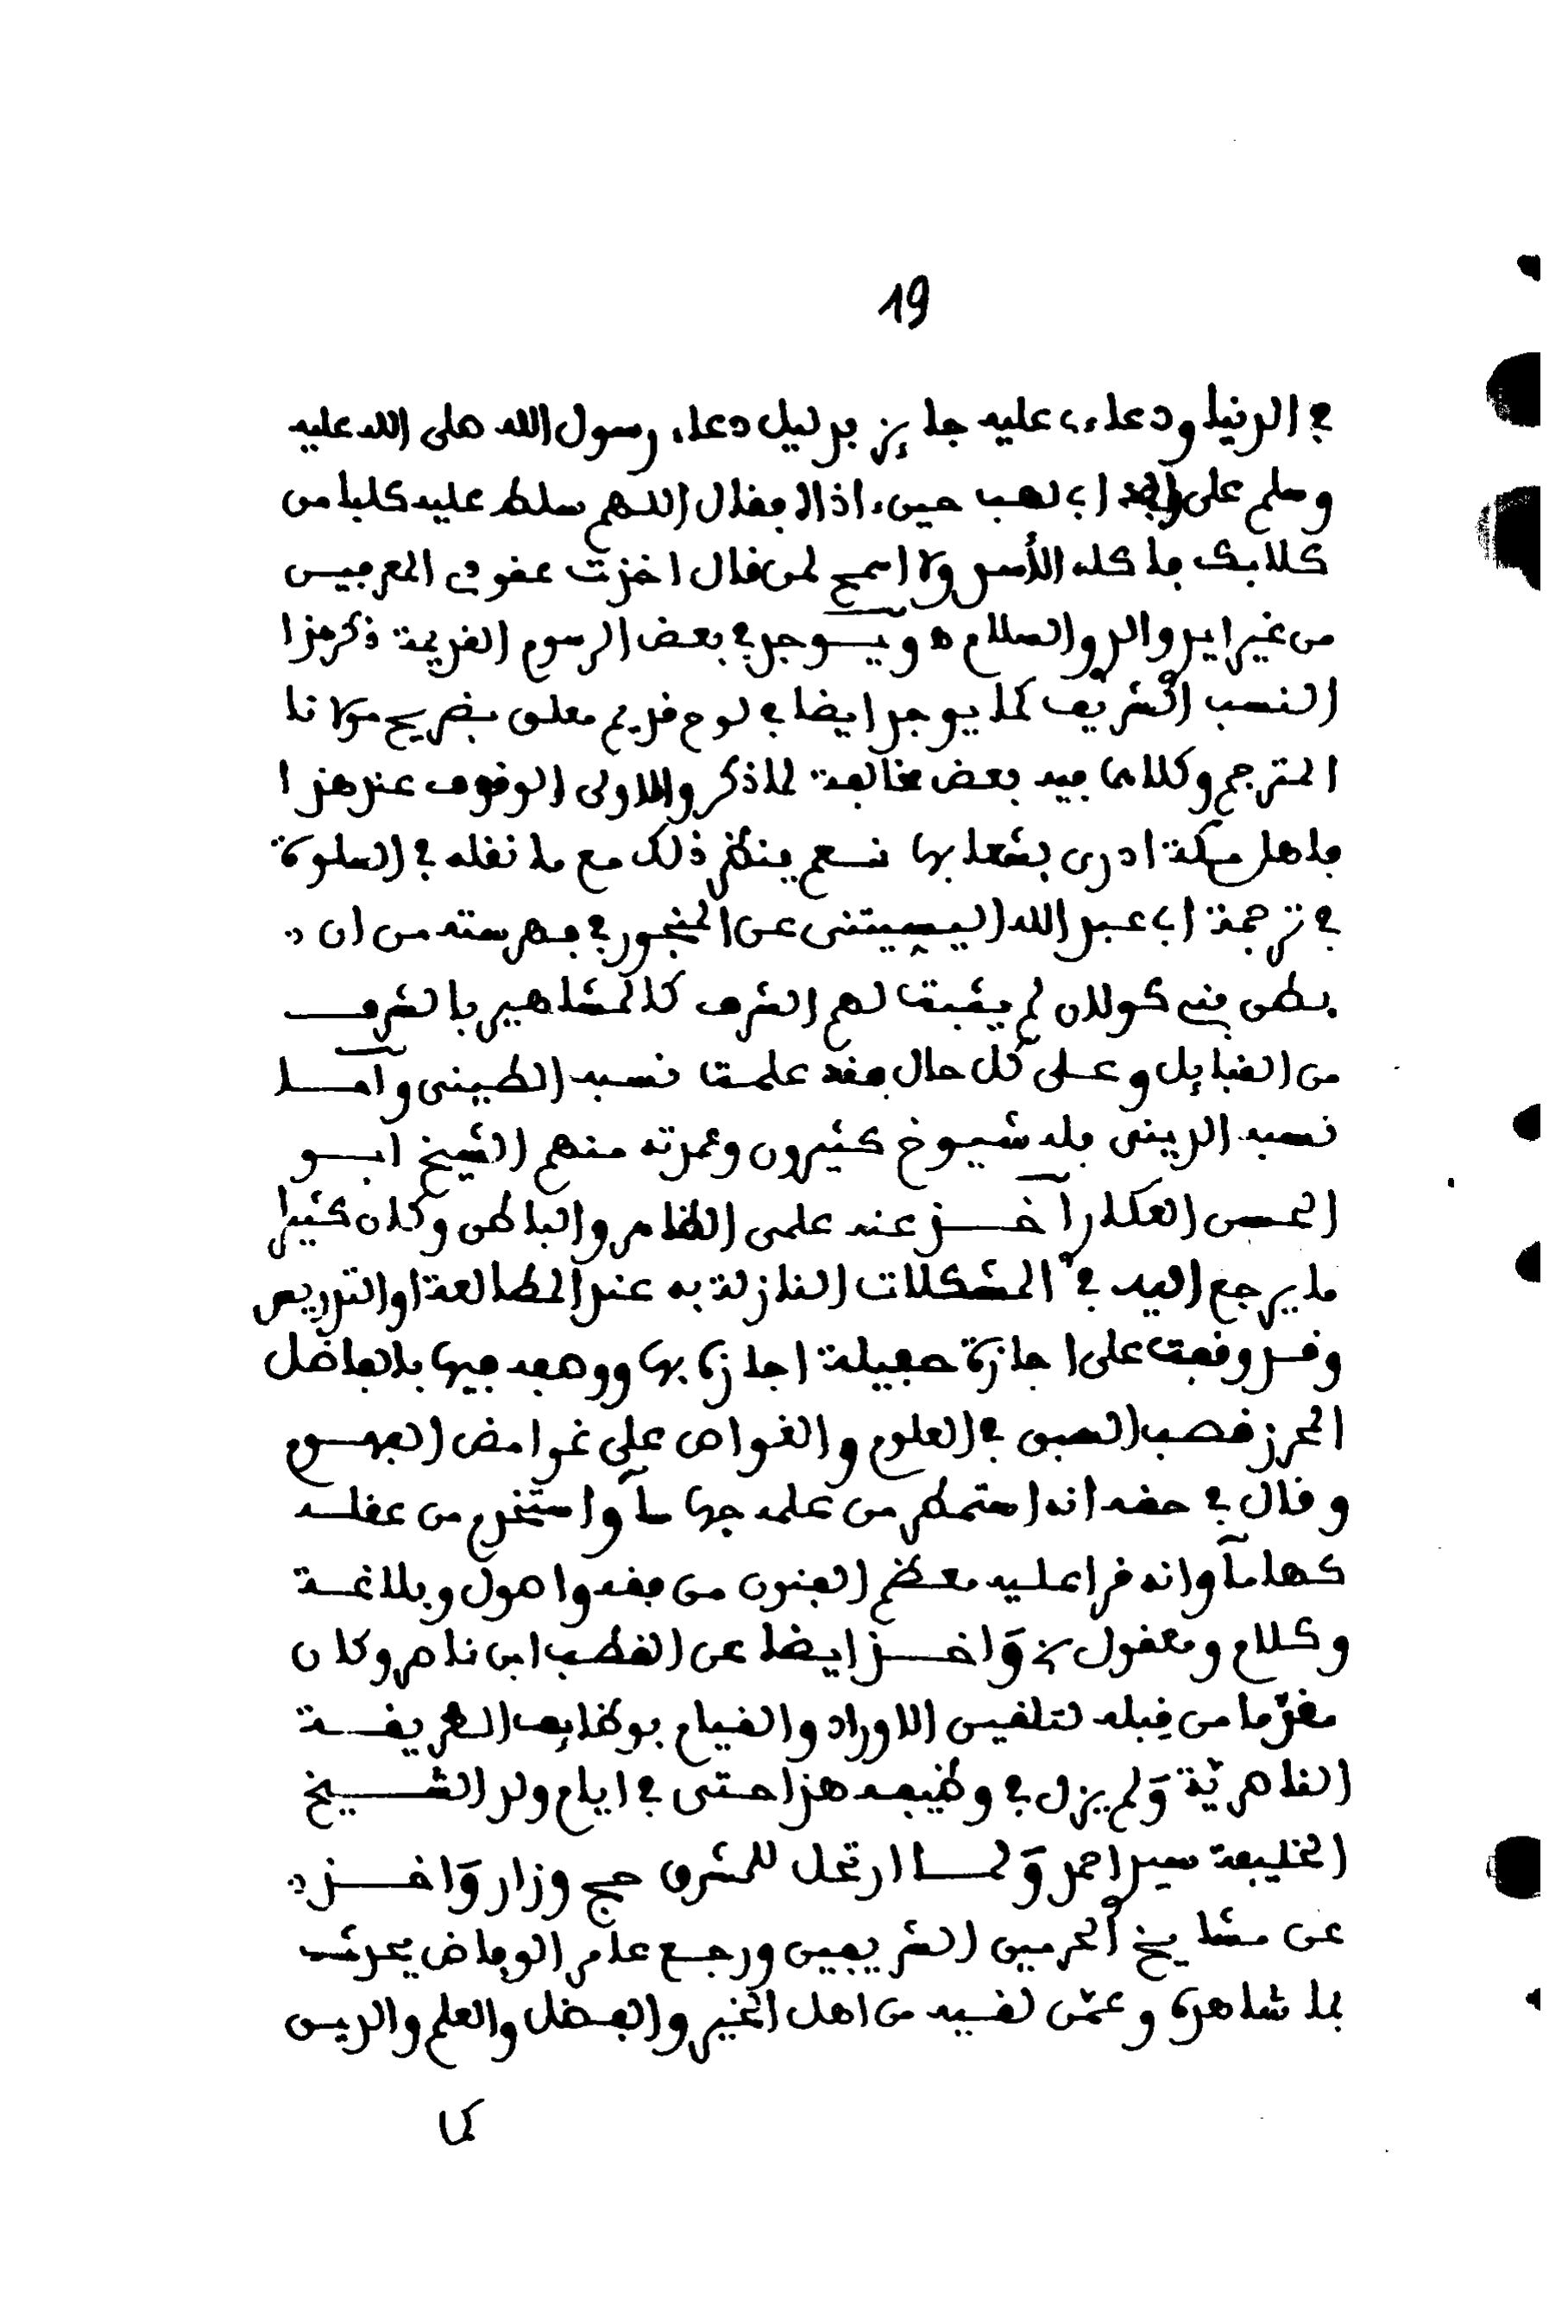 19
في الدنيا ودعاءي عليه جايز بدليل دعاء رسول الله صلى الله عليه
وسلم على ابي لهب حين ءاذاه فقال اللهم سلط عليه كلبا من
كلابك فاكله الأسد ولا اسمح لمن قال اخذت عقود المعرفيين
من غير ايد والد والسلام ه ويوجد في بعض الرسوم القديمة ذكر هذا
النسب الشريف كما يوجد ايضا في لوح قديم معلق بضريح مولانا
المترجم وكلاهما فيه بعض مخالفة لما ذكر والاولى الوقوف عند هذا
فاهل مكة ادرى بشعابها نعم ينظر ذلك مع ما نقله في السلوة
في ترجمة ابي عبد الله اليسيتني عن المنجور في فهرسته من ان
بطن بني كولان لم يثبت لهم الشرف كالمشاهير بالشرف
من القبايل وعلى كل حال فقد علمت نسبه الطيني وآما
نسبه الديني فله شيوخ كثيرون وعمدته منهم الشيخ ابو
الحسن العكاري آخذ عنه علمي الظاهر والباطن وكان كثيرا
ما يرجع اليه في المشكلات النازلة به عند المطالعة او التدريس
وقد وقفت على اجازة حفيلة اجازه بها ووصفه فيها بالفاضل
المحرز قصب السبق في العلوم والغواص على غوامض الفهوم
وقال في حقه انه استمطر من علمه جهاما واستخرج من عقله
كهاما وانه قرا عليه معظم الفنون من فقه واصول وبلاغة
وكلام ومعقول وَاخذ ايضا عن القطب ابن ناصر وكان
مقدّما من قِبله لتلقين الاوراد والقيام بوظايف الطريقة
الناصريّة وَلم يزل في وظيفه هذا حتى في ايام ولد الشيخ
الخليفة سيد احمد وَلما ارتحل للمشرق حج وزار وَاخذ
عن مشايخ الحرمين الشريفين ورجع عامر الوفاض يحدث
بما شاهده وعمّن لقيه من اهل الخير والفضل والعلم والدين
كما